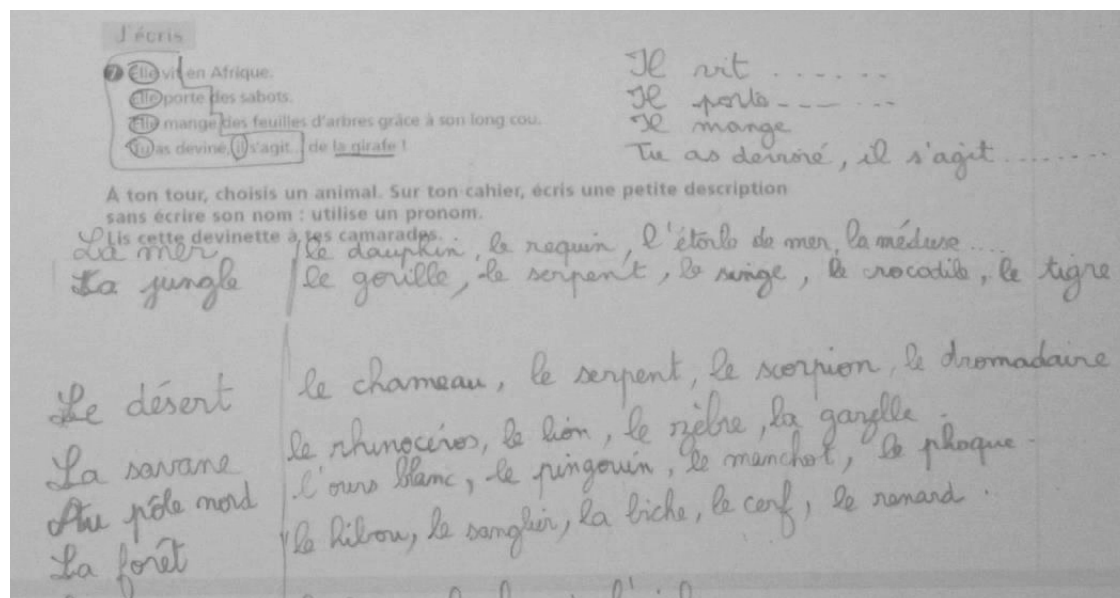 J'écris
7 Elle vit en Afrique.
Elle porte des sabots.
Elle mange des feuilles d'arbres grâce à son long cou.
Tu as deviné, il s'agit... de la girafe !
Il vit .......
Il porte -------
Il mange
Tu as deviné, il s'agit ........
À ton tour, choisis un animal. Sur ton cahier, écris une petite description
sans écrire son nom : utilise un pronom.
Lis cette devinette à tes camarades.
La mer le dauphin, le requin, l'étoile de mer, la méduse ....
La jungle le gorille, le serpent, le singe, le crocodile, le tigre
Le désert le chameau, le serpent, le scorpion, le dromadaire
La savane le rhinocéros, le lion, le zèbre, la gazelle.
Au pôle nord l'ours blanc, le pingouin, le manchot, le phoque.
La forêt le hibou, le sanglier, la biche, le cerf, le renard.